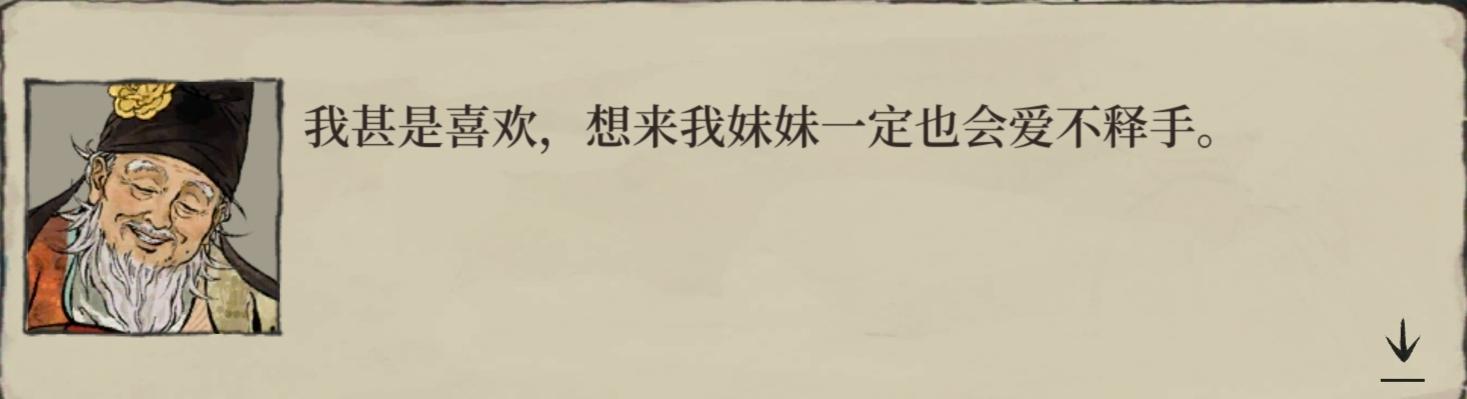 我甚是喜欢，想来我妹妹一定也会爱不释手。